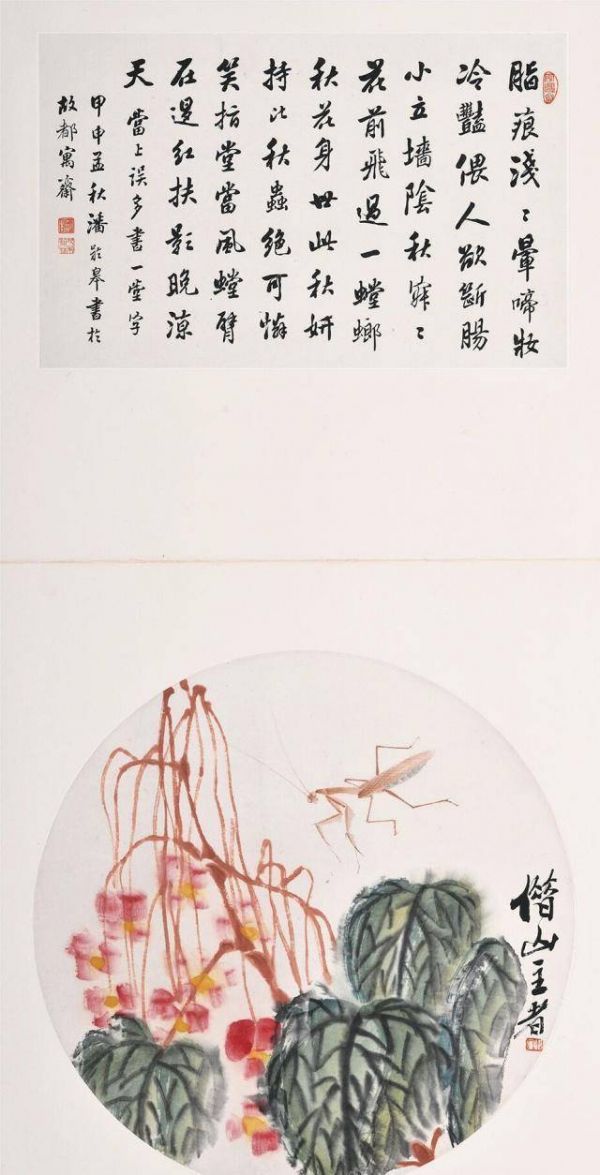 脂痕淺〻暈啼妝
冷豔偎人欲斷腸
小立墻陰秋寂〻
花前飛過一螳螂
秋花身世此秋妍
持比秋蟲絕可憐
笑指堂當風螳臂
在退紅扶影晚涼
天 當上誤多書一堂字
甲申孟秋潘齡皋書於
故都寓齋
借山主者